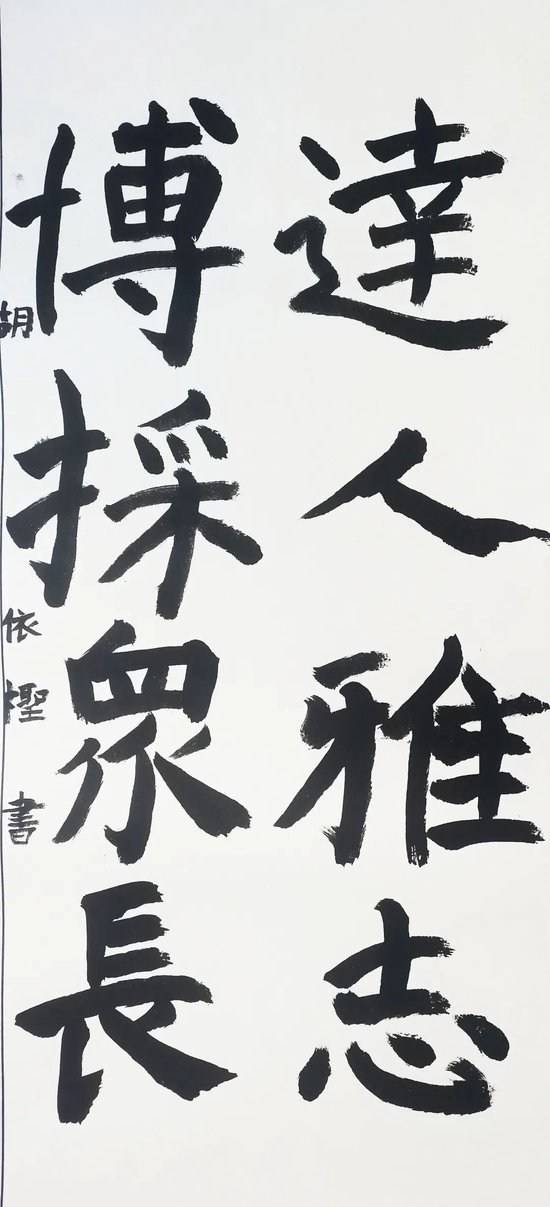 達人雅志
博採眾長
胡依檉書